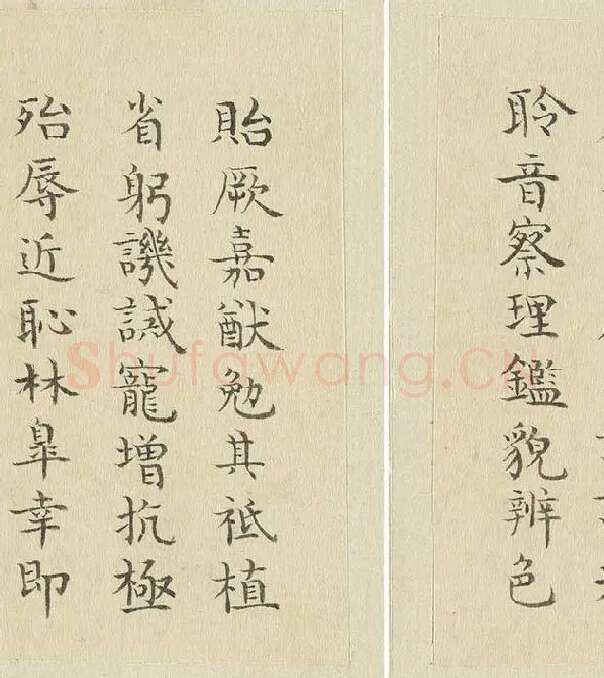 聆音察理鑑貌辨色
貽厥嘉猷勉其祗植
省躬譏誡寵增抗極
殆辱近恥林皋幸即
Shufawang.CN